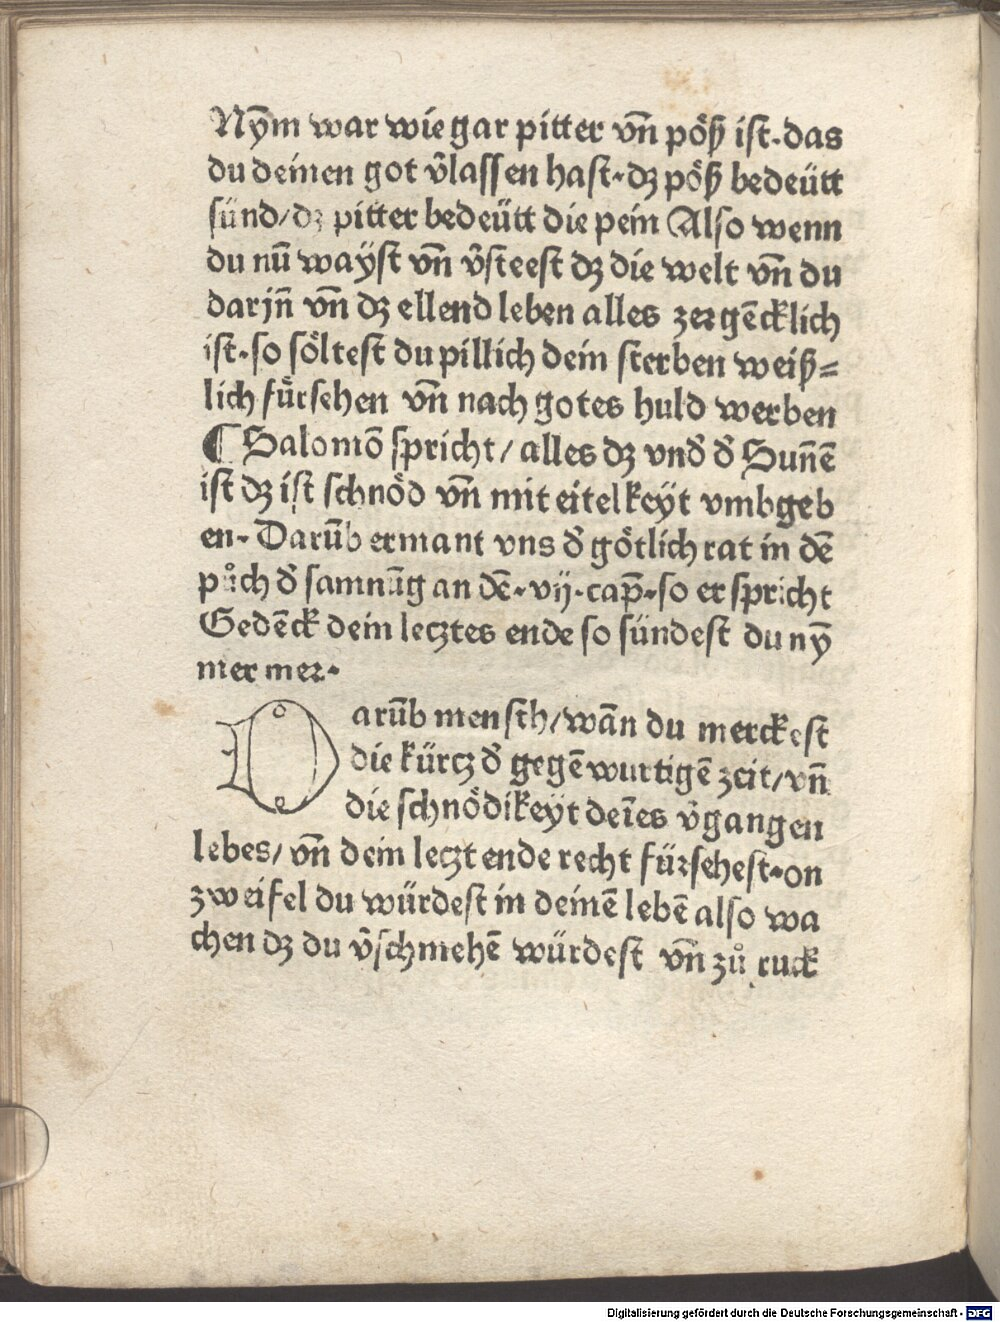 Nȳm war wie gar pitter vn̄ pöß ist·das
du deinen got v̉lassen hast·dꝫ pöß bedeütt
sünd/dꝫ pitter bedeütt die pein Also wenn
du nū wayst vn̄ v̉steest dꝫ die welt vn̄ du
darjn̄ vn̄ dꝫ ellend leben alles zergēcklich
ist·so söltest du pillich dein sterben weiß⸗
lich fürsehen vn̄ nach gotes huld werben
¶ Salomō spricht/alles dꝫ vnd̉ d̉ Sun̄ē
ist dꝫ ist schnöd vn̄ mit eitelkeyt vmbgeb
en·Darūb ermant vns d̉ götlich rat in dē
půch d̉ samnūg an dē·vij·cap̄·so er spricht
Gedēck dein letztes ende so sündest du nȳ
mer mer·
Darūb mensch/wān du merckest
die kürcz d̉ gegēwurtigē zeit/vn̄
die schnödikeyt deīes v̉gangen
lebes/vn̄ dein leczt ende recht fürsehest·on
zweifel du würdest in deinē lebē also wa
chen dꝫ du v̉schmehē würdest vn̄ zů ruck
Digitalisierung gefördert durch die Deutsche Forschungsgemeinschaft - DFG